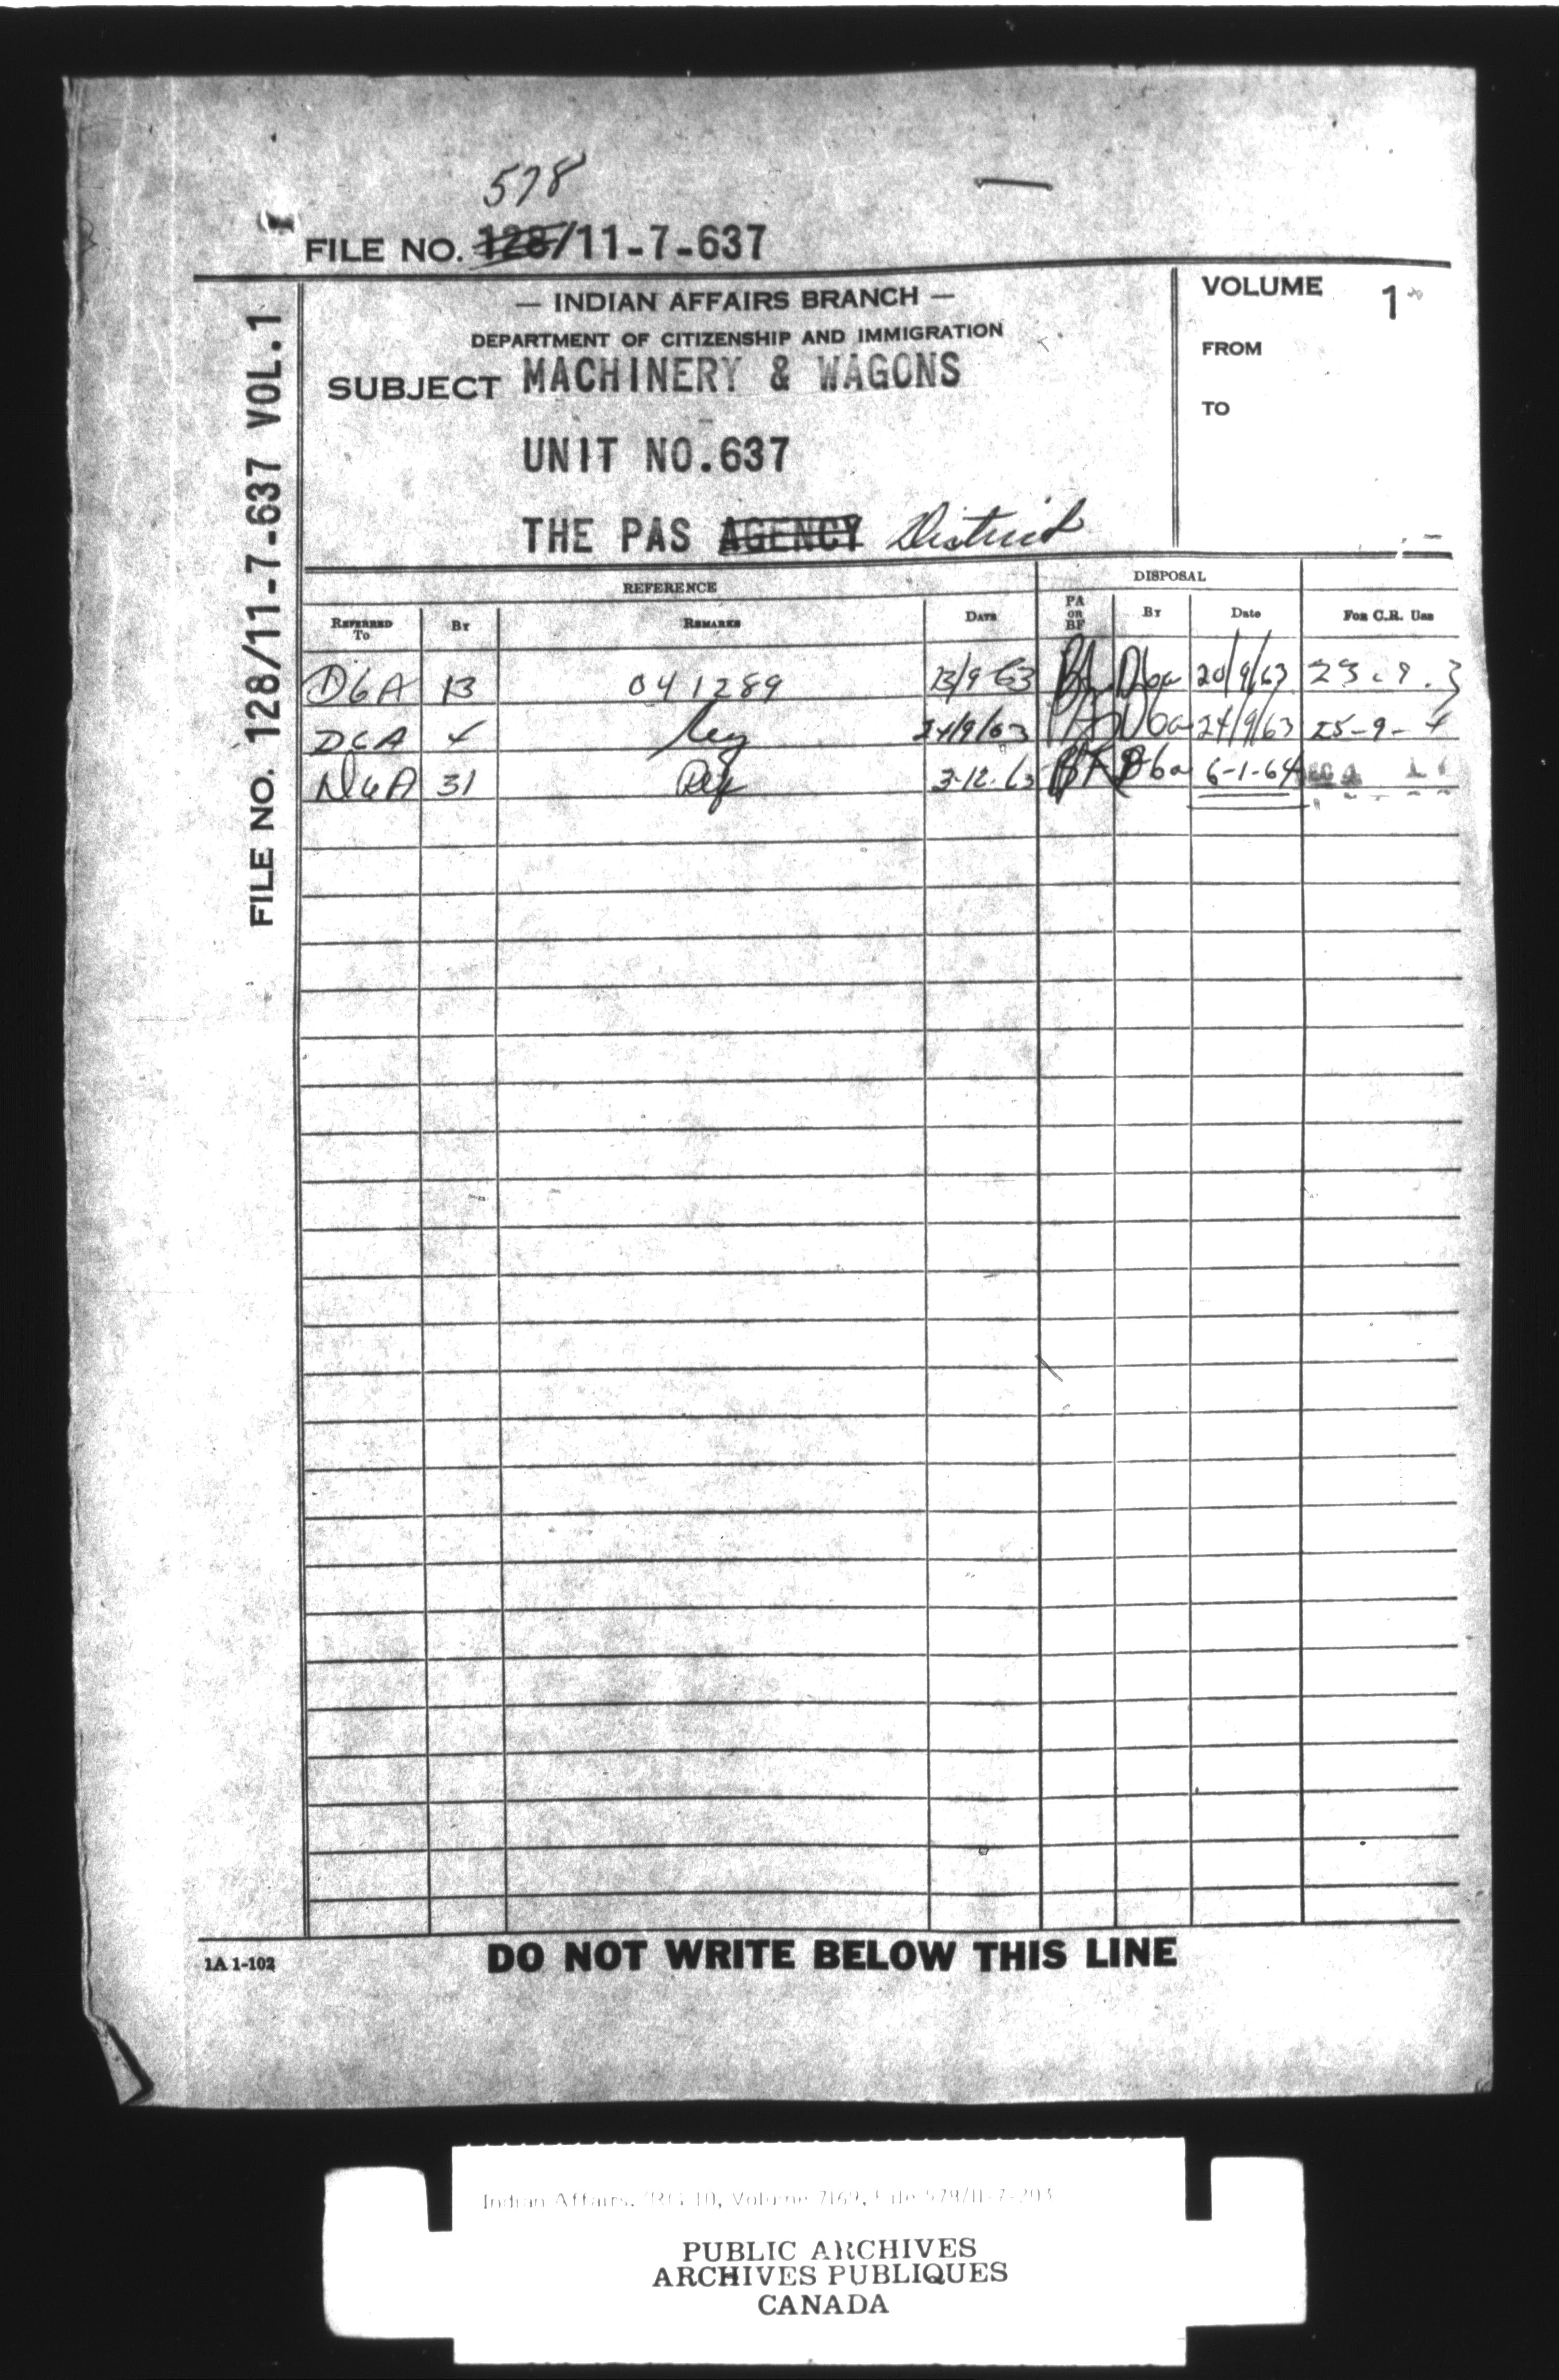 578
FILE NO. 128/11-7-637
— INDIAN AFFAIRS BRANCH —
DEPARTMENT OF CITIZENSHIP AND IMMIGRATION
SUBJECT MACHINERY & WAGONS
UNIT NO.637
THE PAS AGENCY District
VOLUME 1
FROM
TO
FILE NO. 128/11-7-637 VOL.1
REFERENCE DISPOSAL
REFERRED TO BY REMARKS DATE PA OR BF BY Date FOR C.R. USE
D6A 13 041289 13/9/63 D6a 20/9/63 23.9.3
D6A 24/9/63 PA D6a 24/9/63 25-9-
D6A 31 3-12-63 BF D6a 6-1-64
1A 1-102
DO NOT WRITE BELOW THIS LINE
Indian Affairs. RG 10, Volume 7169, File 578/11-7-203
PUBLIC ARCHIVES
ARCHIVES PUBLIQUES
CANADA